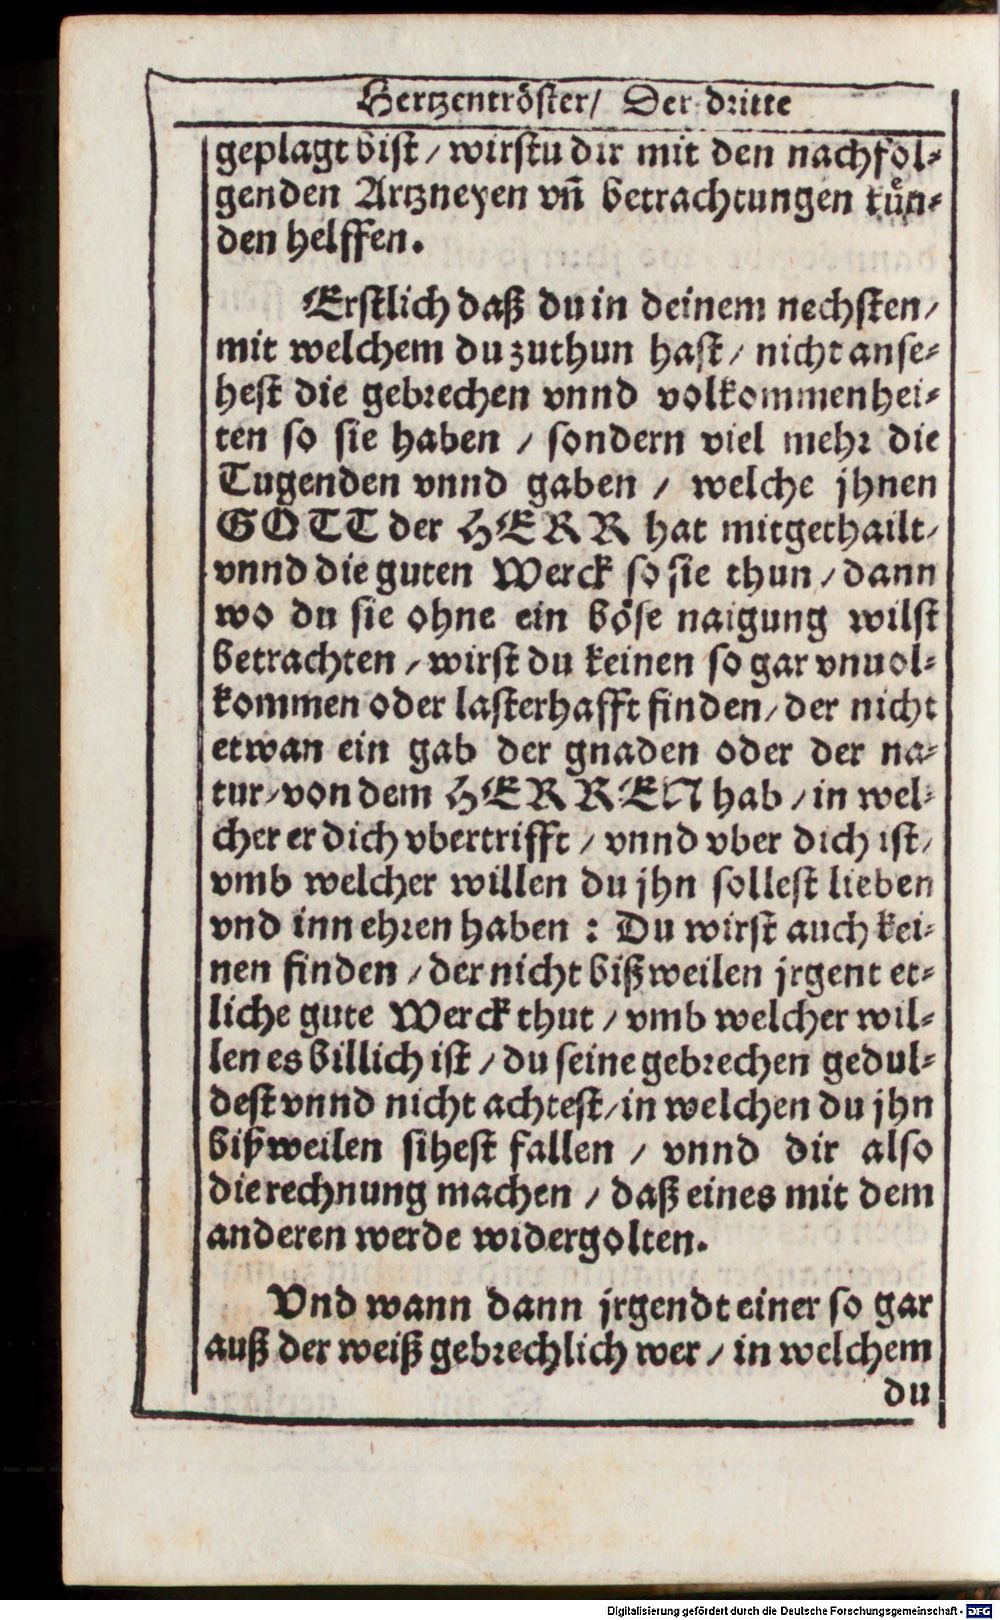 Hertzentröster/ Der dritte
geplagt bist/ wirstu dir mit den nachfol-
genden Artzneyen vñ betrachtungen kün-
den helffen.
Erstlich daß du in deinem nechsten/
mit welchem du zuthun hast/ nicht anse-
hest die gebrechen vnnd volkommenhei-
ten so sie haben / sondern viel mehr die
Tugenden vnnd gaben / welche jhnen
GOTT der HERR hat mitgethailt/
vnnd die guten Werck so sie thun/ dann
wo du sie ohne ein böse naigung wilst
betrachten/ wirst du keinen so gar vnuol-
kommen oder lasterhafft finden/ der nicht
etwan ein gab der gnaden oder der na-
tur/ von dem HERREN hab/ in wel-
cher er dich vbertrifft/ vnnd vber dich ist/
vmb welcher willen du jhn sollest lieben
vnd inn ehren haben : Du wirst auch kei-
nen finden/ der nicht bißweilen jrgent et-
liche gute Werck thut/ vmb welcher wil-
len es billich ist/ du seine gebrechen gedul-
dest vnnd nicht achtest/ in welchen du jhn
bißweilen sihest fallen / vnnd dir also
die rechnung machen / daß eines mit dem
anderen werde widergolten.
Vnd wann dann jrgendt einer so gar
auß der weiß gebrechlich wer/ in welchem
du
Digitalisierung gefördert durch die Deutsche Forschungsgemeinschaft - DFG